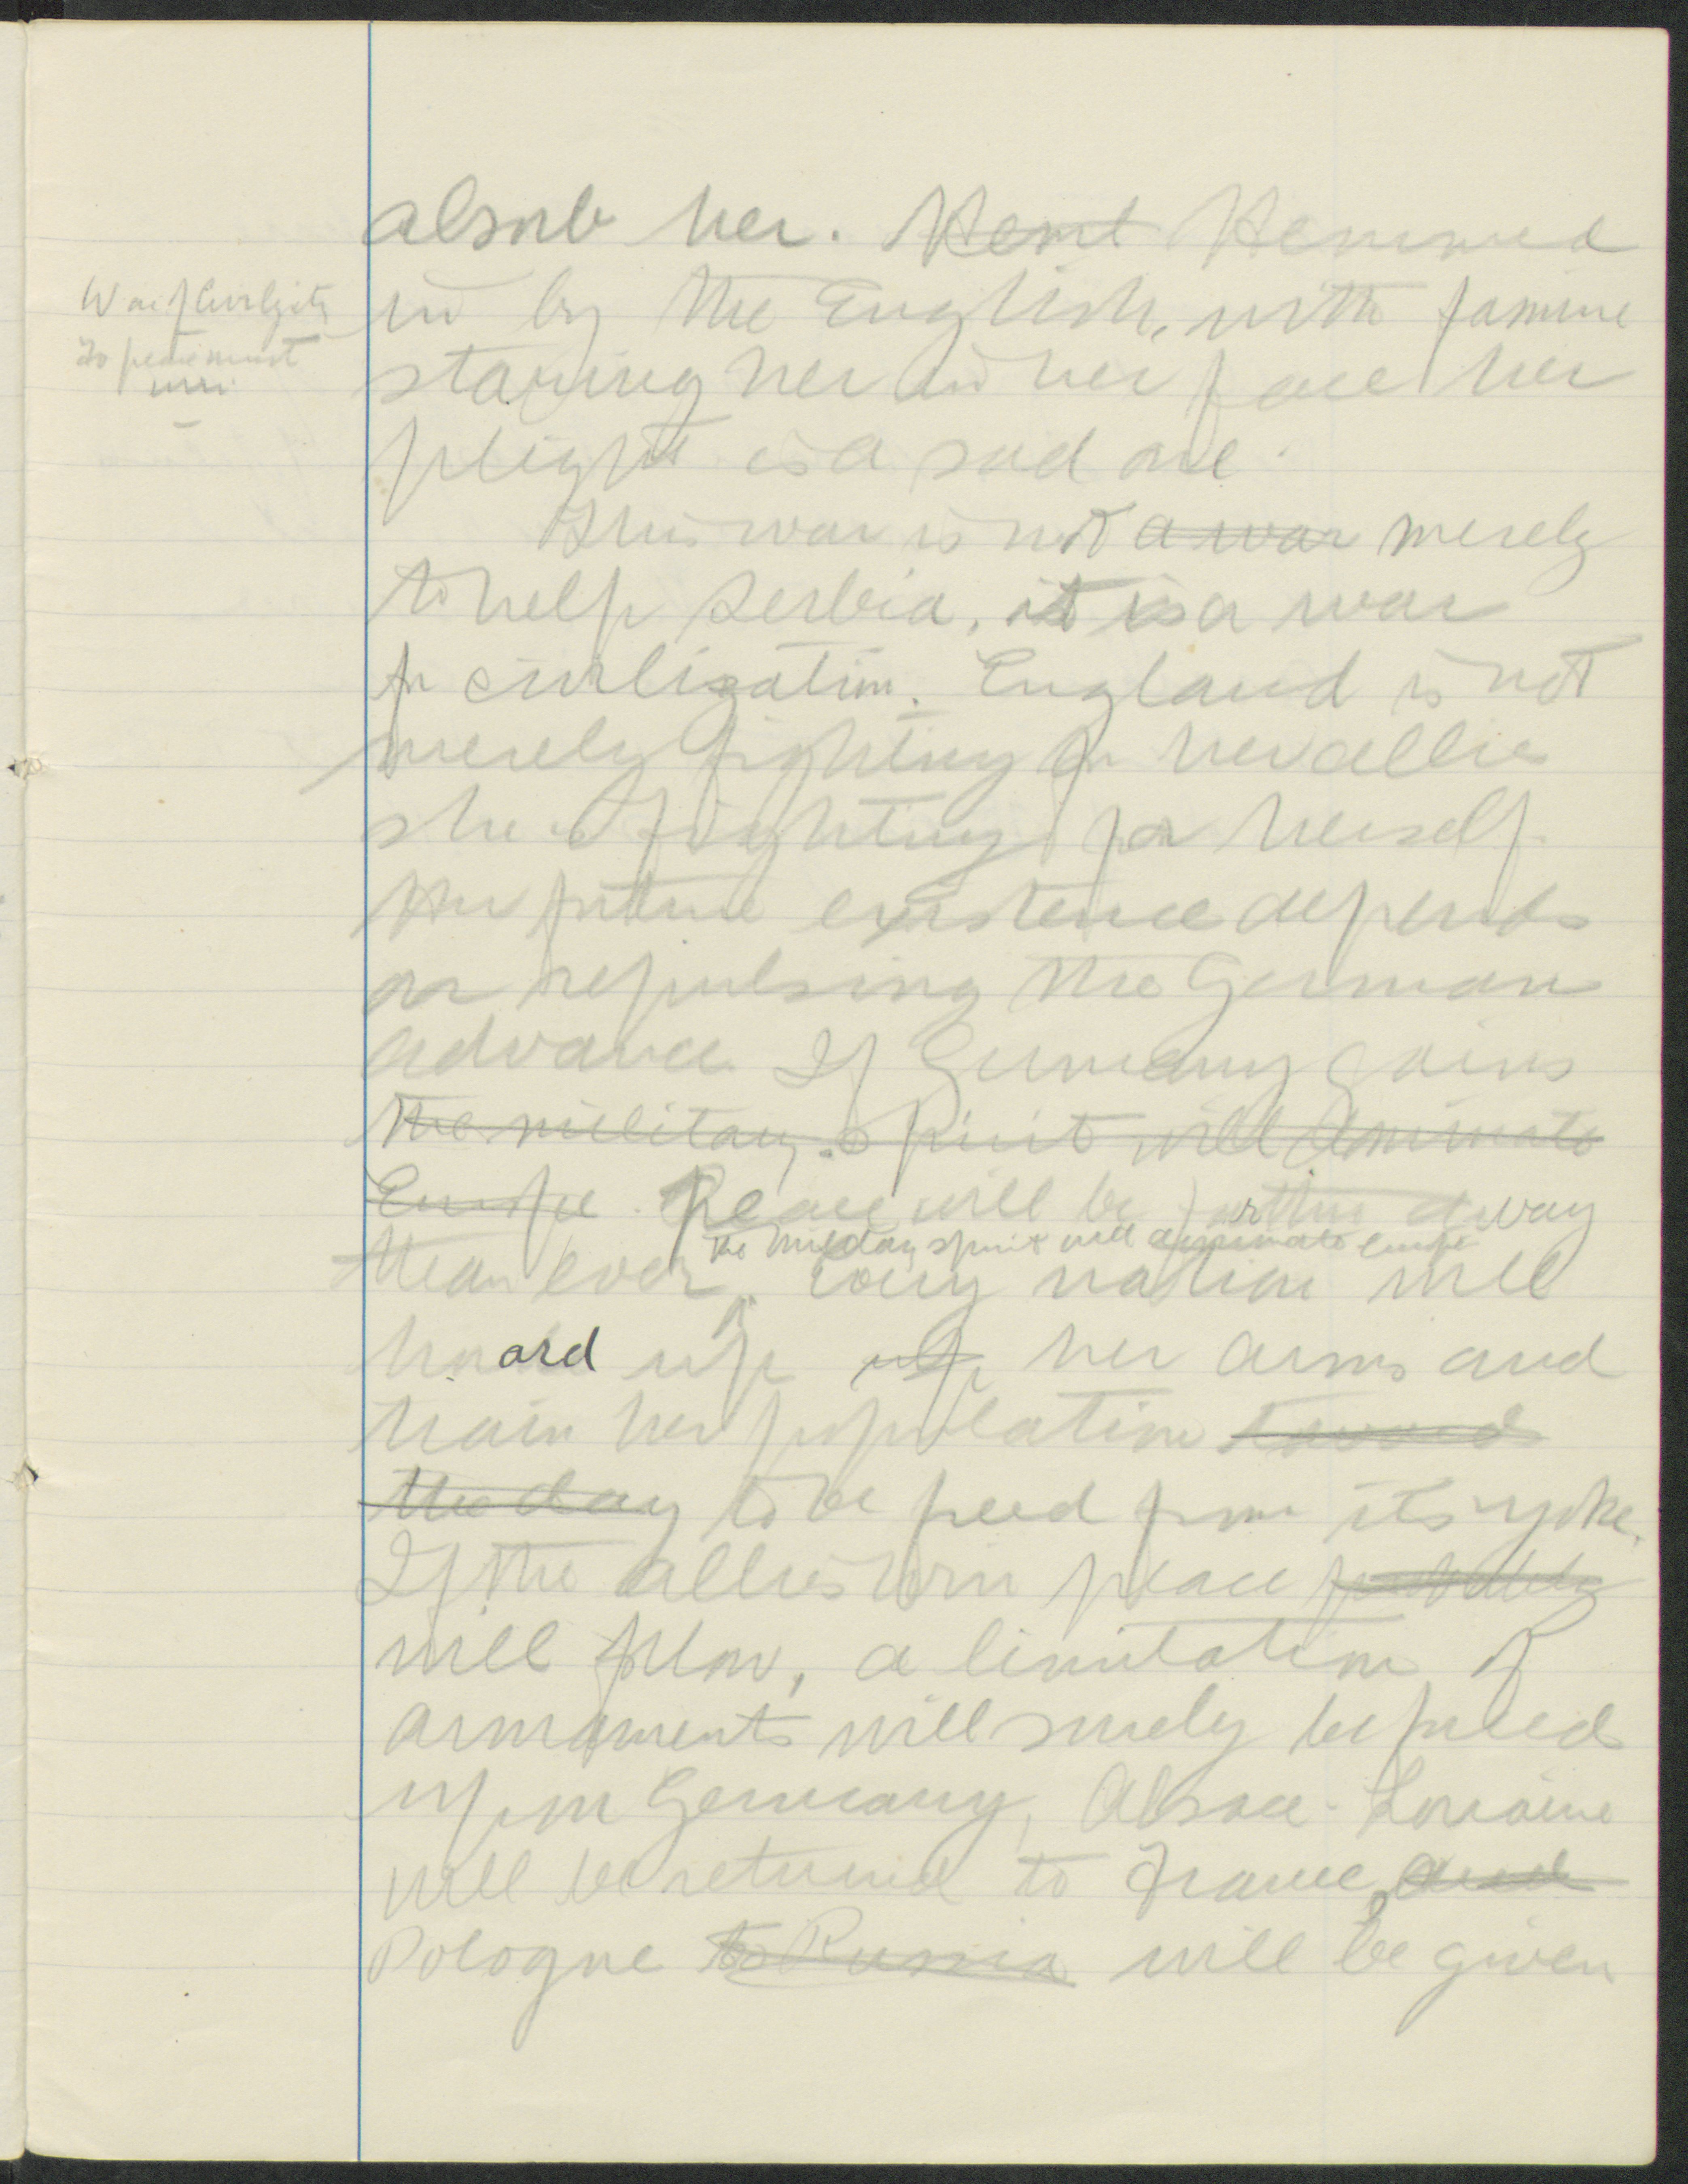 absorb her. Heml Hemmed
in by the English, with famine
War f Civilizatn
To peace must
win
staring her in her face her
plight is a sad one.
This war is not a war merely
to help Serbia, it is a war
for civilization. England is not
merely fighting for her allies
she is fighting for herself.
Her future existence depends
on repulsing the German
advance. If Germany gains
the military spirit will animate
Europe. Peace will be farther away
the military spirit will animate Europe
than ever. Every nation will
hoard up up her arms and
train her population toward
the day to be freed from its yoke.
If the allies win peace probably
will follow, a limitation of
armaments will surely be forced
upon Germany, Alsace-Lorraine
will be returned to France, and
Pologne to Russia will be given